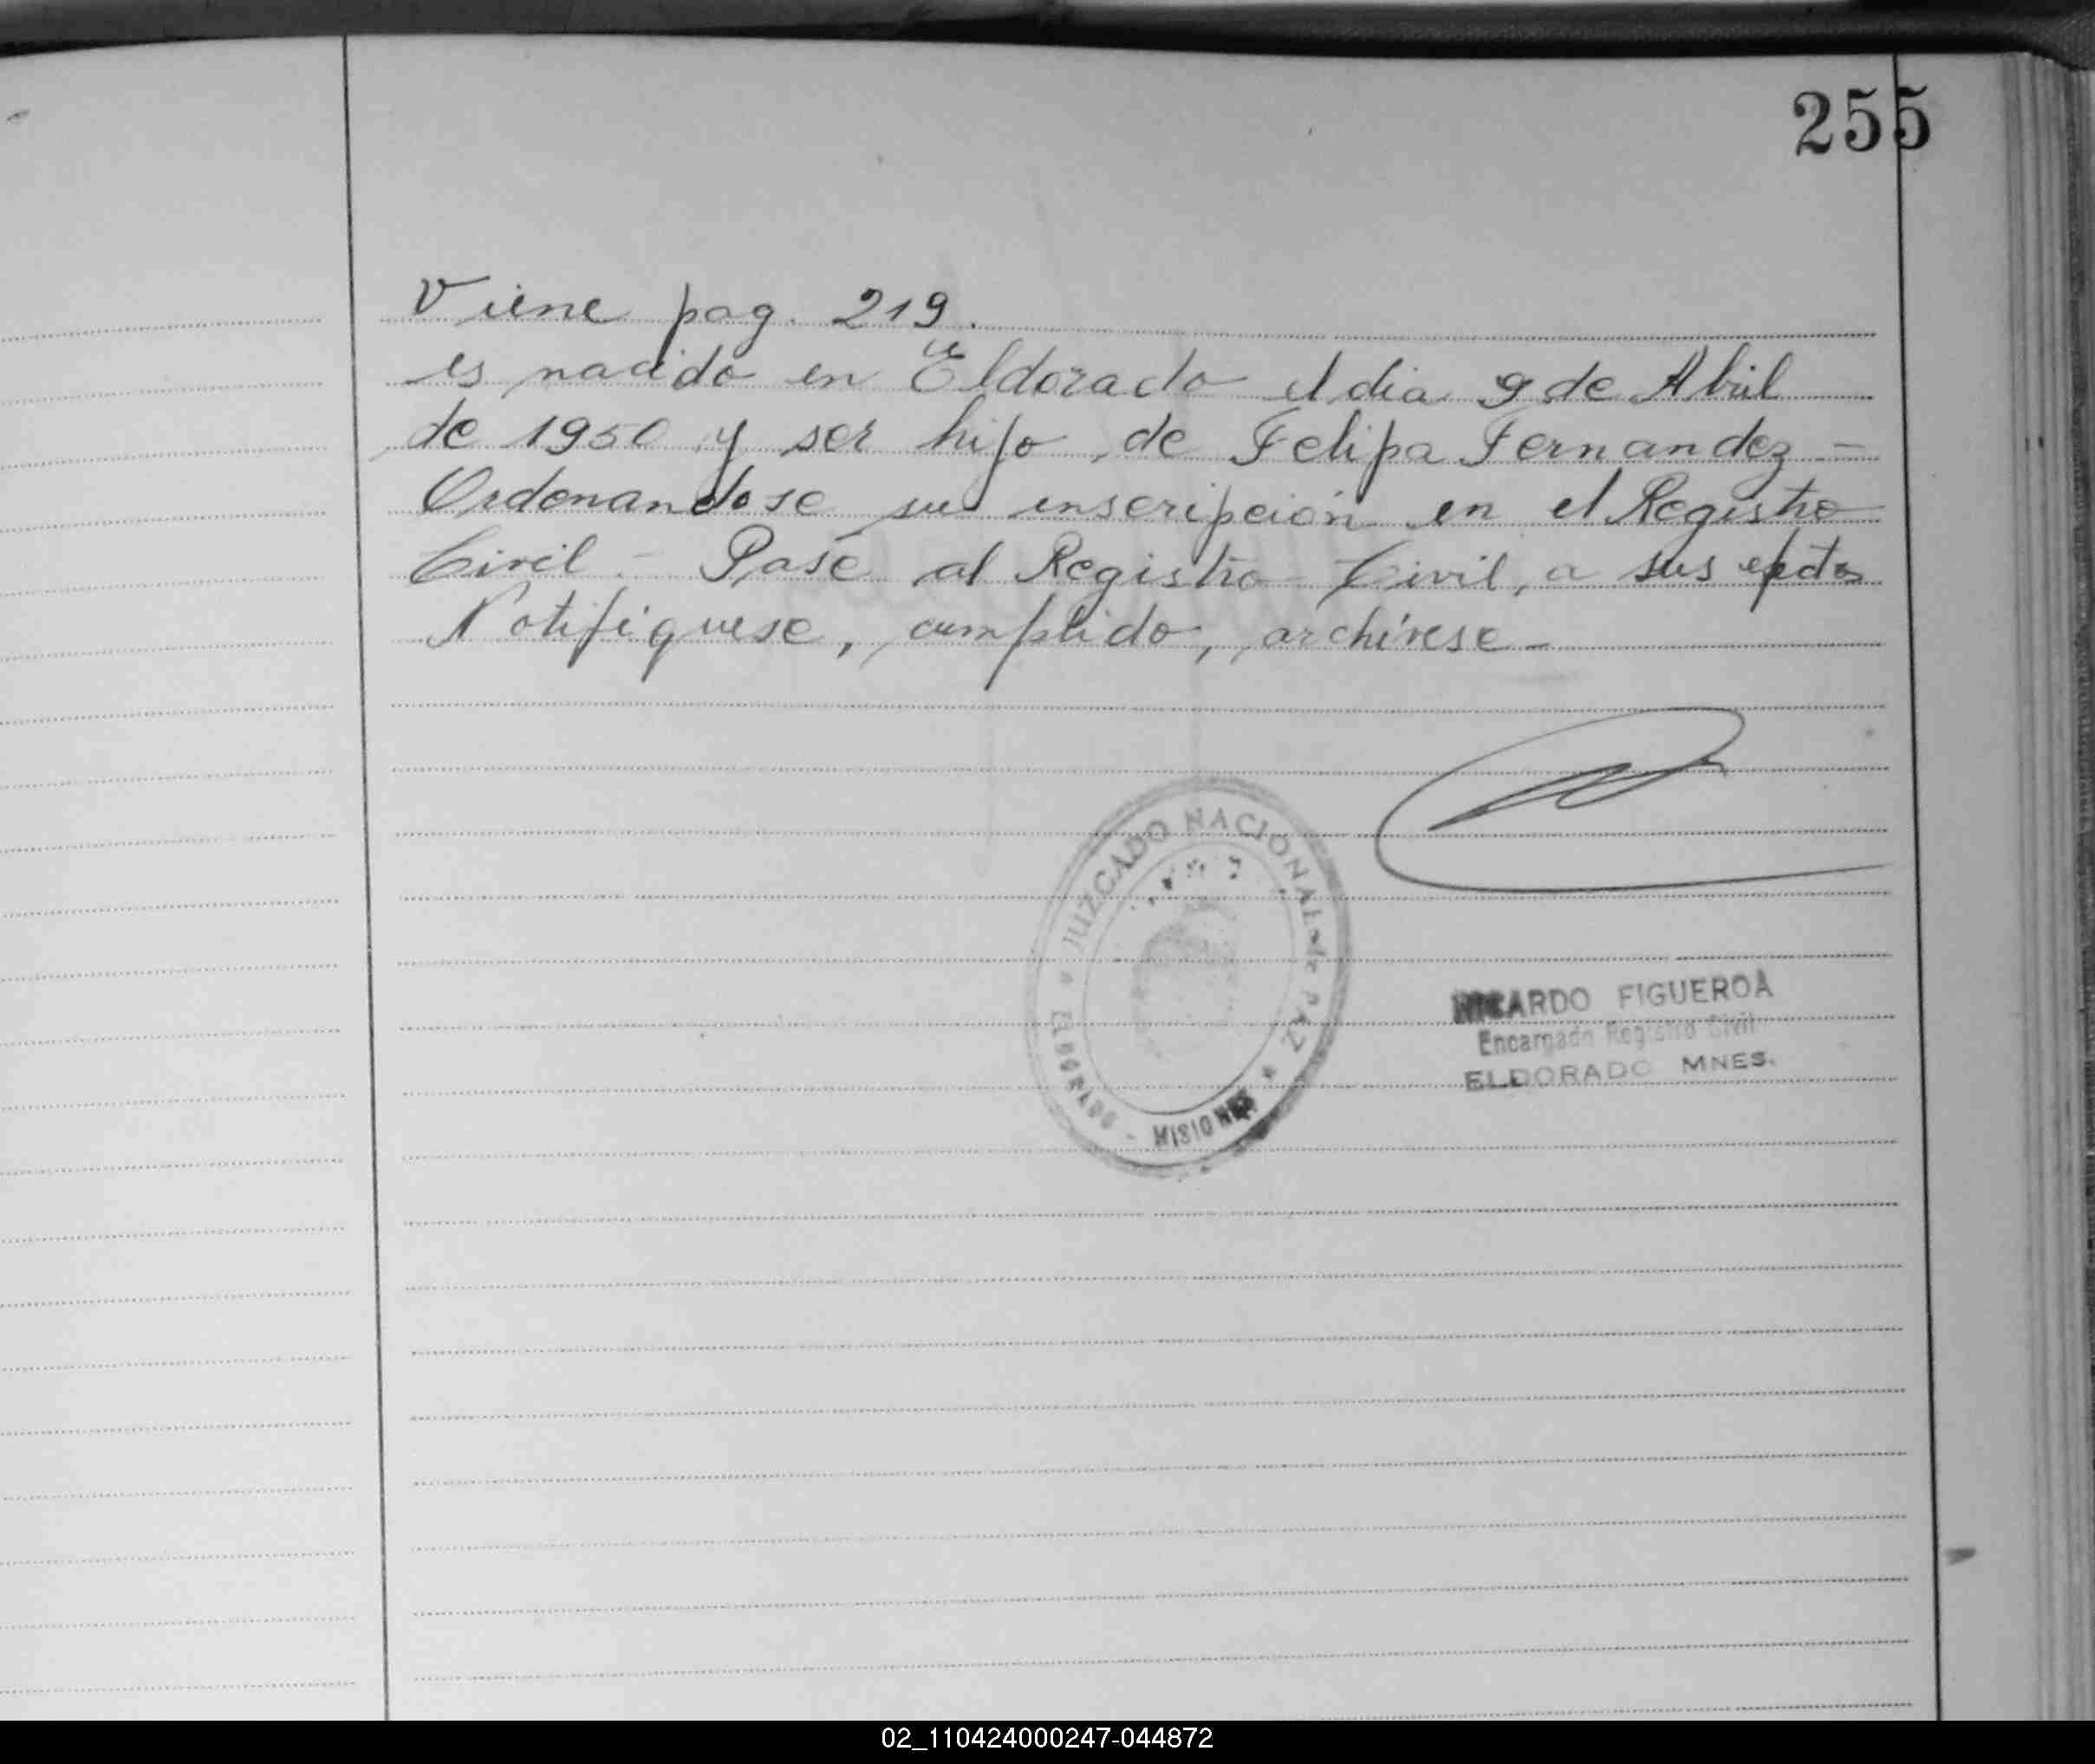 255
Viene pag. 219.
es nacido en Eldorado el dia 9 de Abril
de 1950 y ser hijo de Felipa Fernandez -
Ordenandose su inscripción en el Registro
Civil - Pase al Registro Civil, a sus
Notifiquese, cumplido, archívese -
JUZGADO NACIONAL de PAZ
ELDORADO - MISIONES
RICARDO FIGUEROA
Encargado Registro Civil
ELDORADO MNES.
02_110424000247-044872